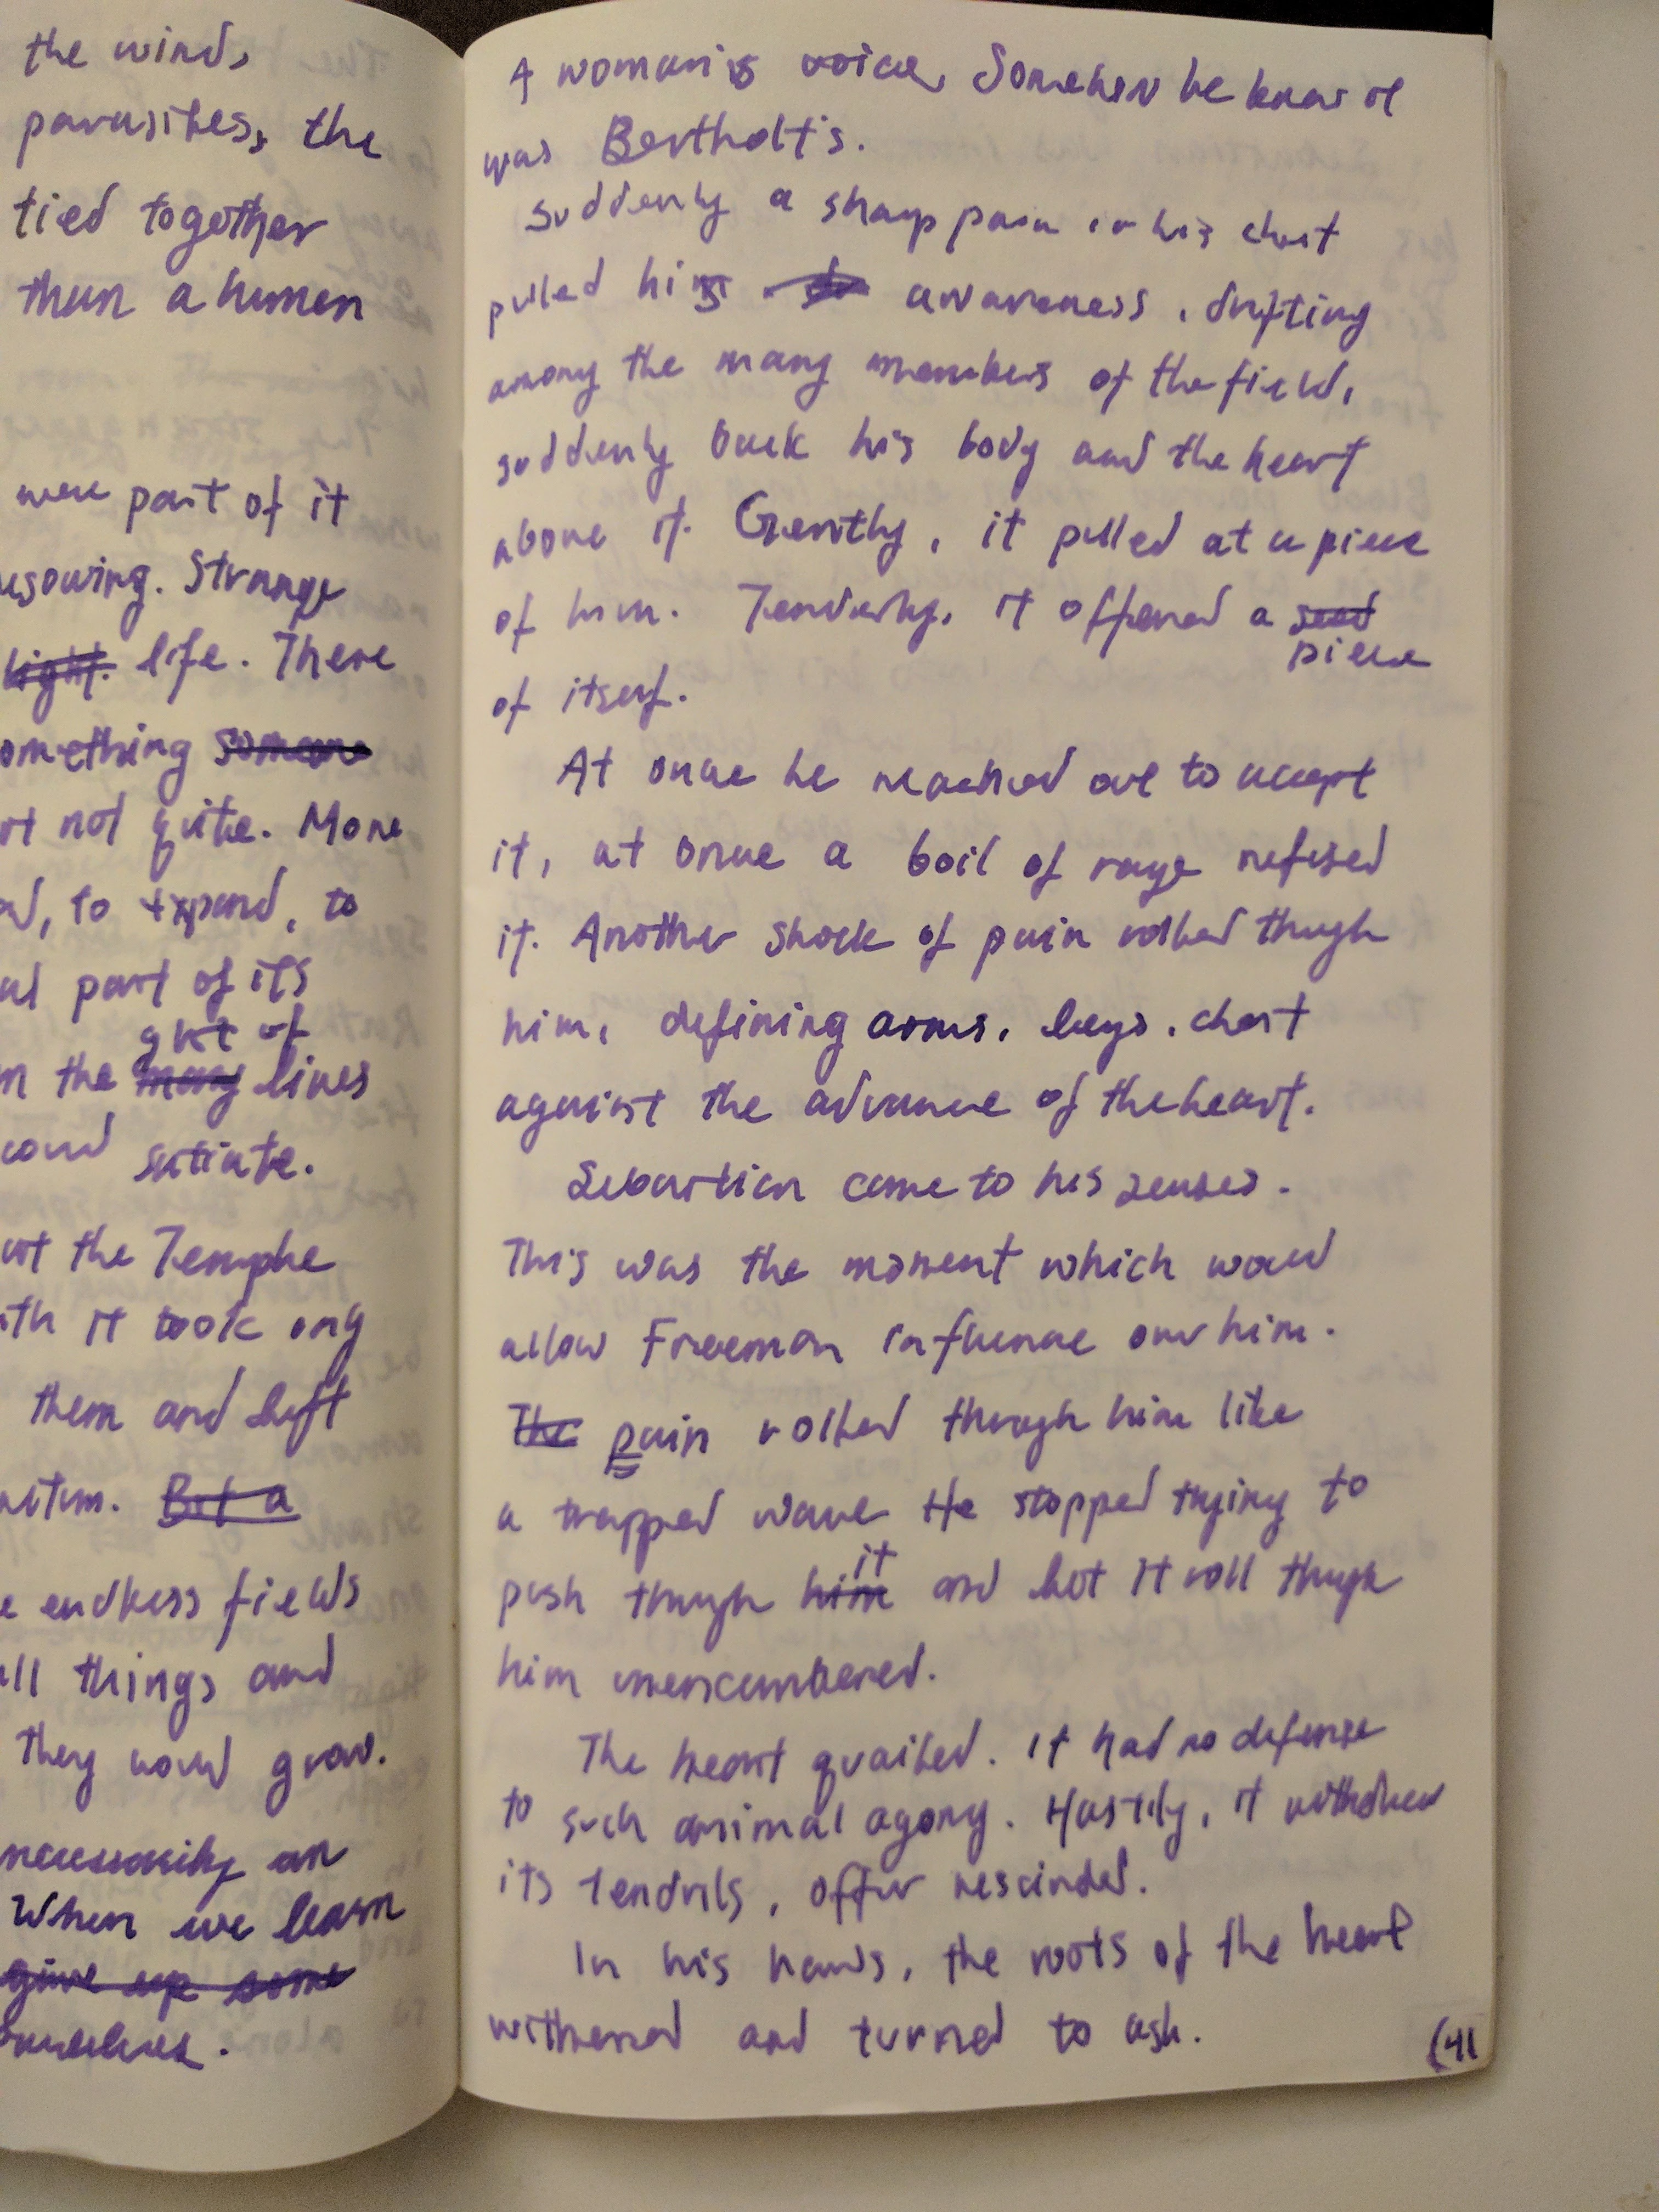 the wind,
parasites, the
tied together
than a human
were part of it
Strange
light. life. There
omething someone
not quite. More
to expand, to
part of its
gut of
n the many lives
satiate.
the Temple
ith it took ong
them and left
But a
endless fields
all things and
they would grow.
necessarily an
When we learn
give up some
ourselves.
A woman's voice, Somehow he knew it
was Bertholt's.
Suddenly a sharp pain in his chest
pulled his awareness, drifting
among the many members of the field,
suddenly back his body and the heart
above it. Gently, it pulled at a piece
of him. Tenderly, it offered a seed
piece
of itself.
At once he reached out to accept
it, at once a boil of rage refused
it. Another shock of pain rolled through
him, defining arms, legs, chest
against the advance of the heart.
Sebastian came to his senses.
This was the moment which would
allow Freeman influence over him.
The pain rolled through him like
a trapped wave He stopped trying to
it
push through him and let it roll through
him unencumbered.
The heart quailed. It had no defense
to such animal agony. Hastily, it withdrew
its tendrils, offer rescinded.
In his hands, the roots of the heart
withered and turned to ash.
(41